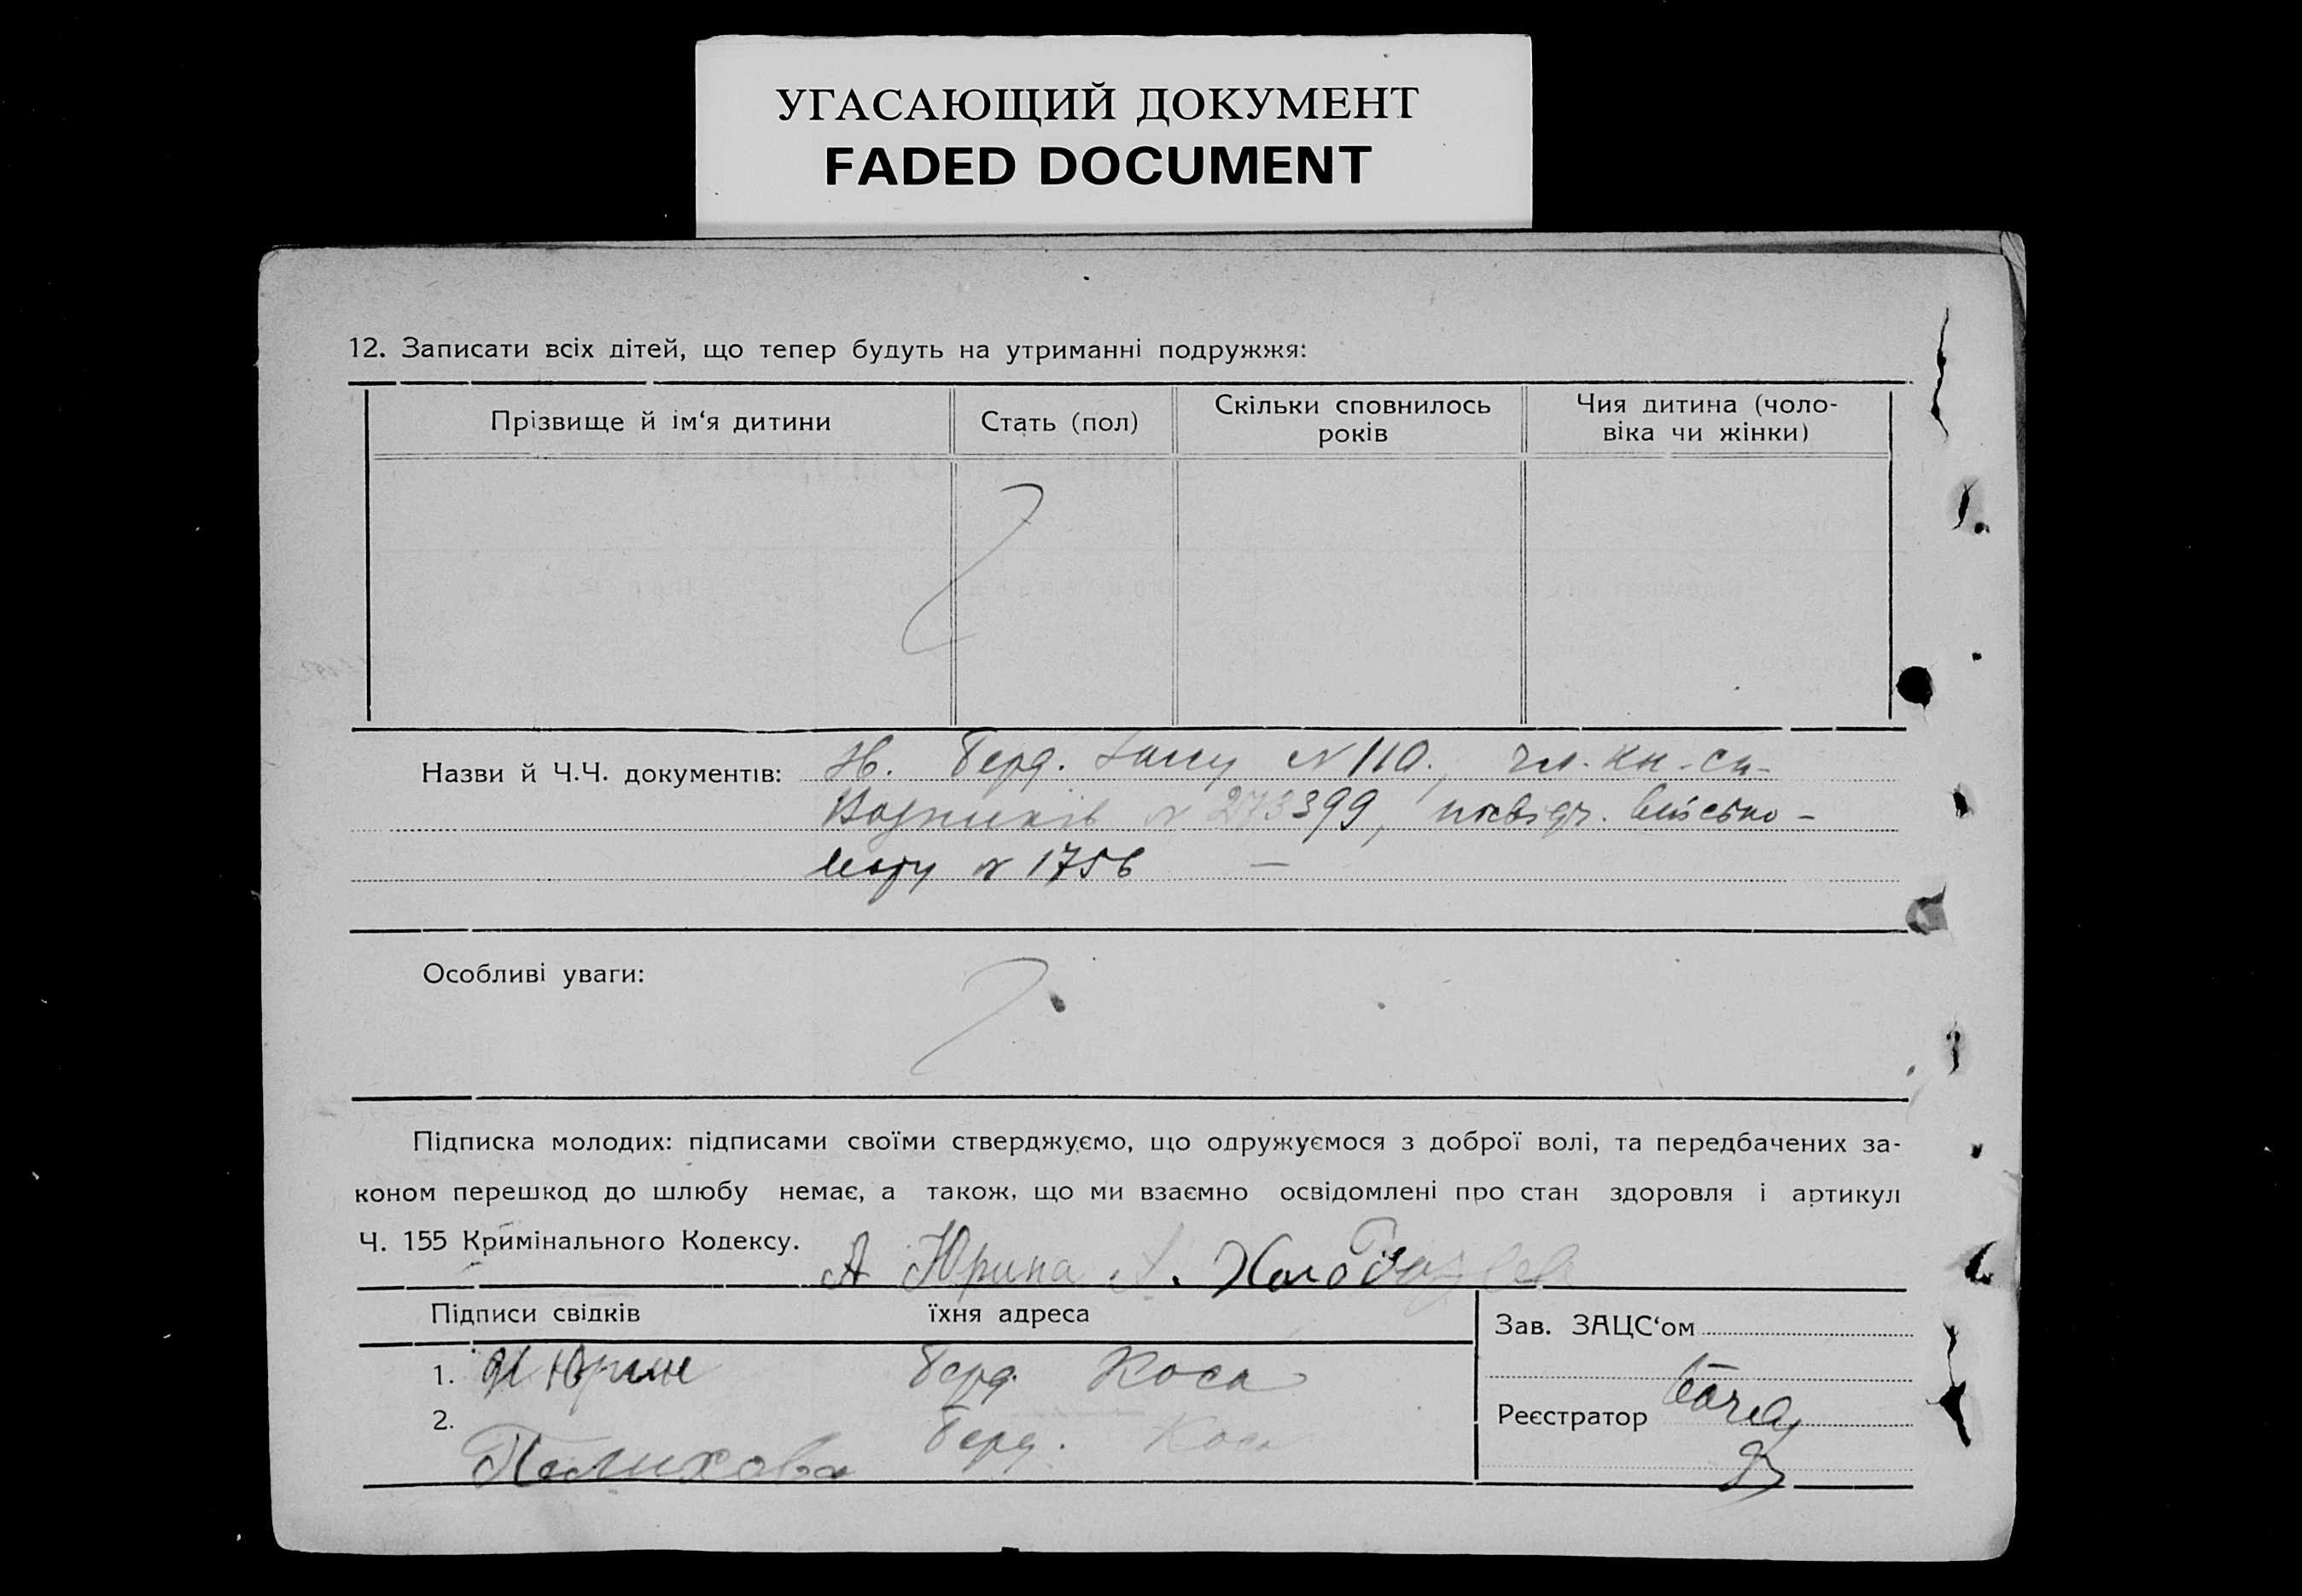 УГАСАЮЩИЙ ДОКУМЕНТ
FADED DOCUMENT
12. Записати всіх дітей, що тепер будуть на утриманні подружжя:
Прізвище й ім‘я дитини
Стать (пол)
Скільки сповнилось
років
Чия дитина (чоло-
віка чи жінки)
Назви й Ч.Ч. документів: Берд. N 110., чл. кн. сп-
N 273399, посвідч. військо-
N 1756 —
Особливі уваги:
Підписка молодих: підписами своїми стверджуємо, що одружуємося з доброї волі, та передбачених за-
коном перешкод до шлюбу немає, а також, що ми взаємно освідомлені про стан здоровля і артикул
Ч. 155 Кримінального Кодексу.
А Юрина
Підписи свідків їхня адреса
Зав. ЗАЦС‘ом
1. Юрин Берд. Коса
2. Берд. Коса
Реєстратор